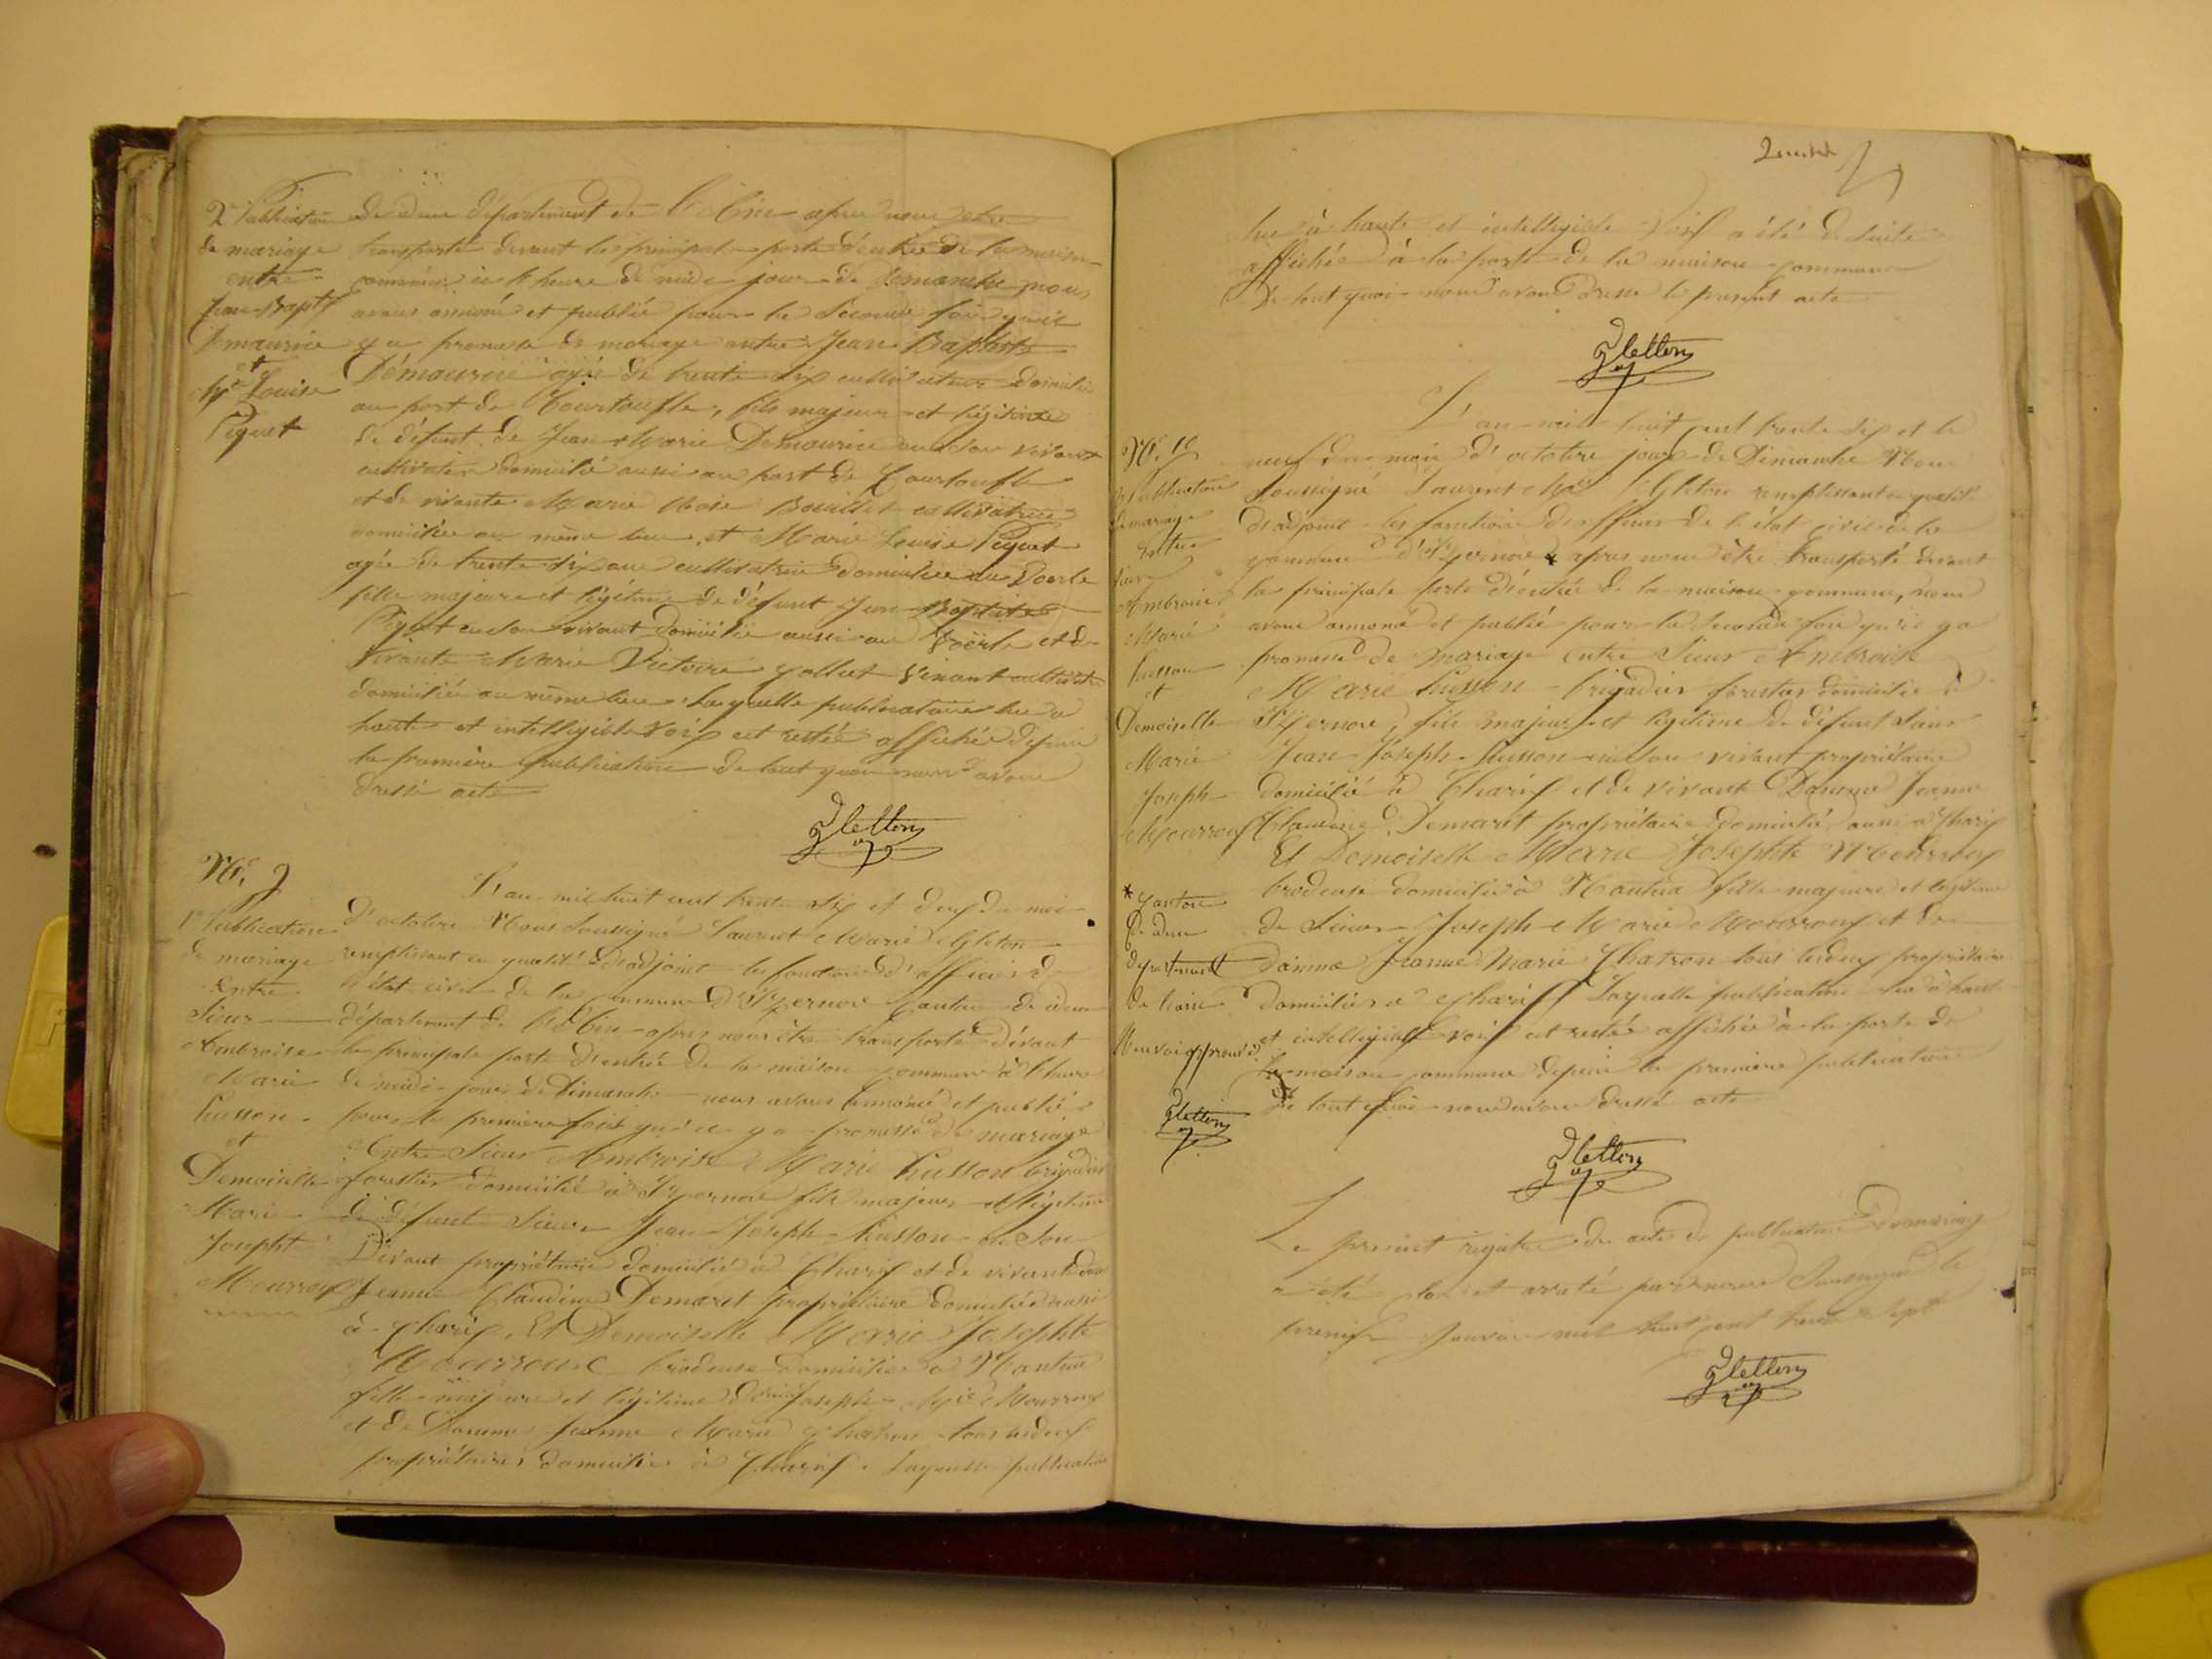 2e Publication
de mariage
entre
Jean Bapte
Demaurice
et
Mie Louise
Piquet
de idem département de l'Ain après nous être
transporté devant la principale porte d'entrée de la maison
commune à l'heure de midi jour de Dimanche nous
avons annoncé et publié pour la seconde fois qu'il
y a promesse de mariage entre Jean Baptiste
Démaurice agé de trente six cultivateur domicilié
au port de Courtoufle, fils majeur et légitime
de défunt de Jean Marie Demaurice en son vivant
cultivateur domicilié aussi au port de Courtoufle
et de vivante Marie Rose Bouillet cultivatrice
domiciliée au même lieu, et Marie Louise Piquet
agée de trente six ans cultivatrice domiciliée au Voerle
fille majeure et légitime de défunt Jean Baptiste
Piquet en son vivant domicilié aussi au Voërle et de
vivante Marie Victoire Gallet vivant cultivatrice
domiciliée au même lieu. Laquelle publication lue à
haute et intelligible voix est restée affichée depuis
la première publication de tout quoi nous avons
dressé acte
Gletton
No. 9
1e Publication
de mariage
Entre
Sieur
Ambroise
Marie
Husson
et
Demoiselle
Marie
Josepht
Mourroux
L'an mil huit cent trente six et deux du mois
d'octobre Nous soussigné Laurent Marie Gleton
remplissant en qualité d'adjoint les fonctions d'officier de
l'état civil de la commune d'Izernore Canton de idem
département de l'Ain après nous être transporté dévant
la principale porte d'entrée de la maison commune à l'heure
de midi jour de Dimanche nous avons annoncé et publié
pour la première fois qu'il y a promesse de mariage
Entre Sieur Ambroise Marie Husson brigadier
forestier domicilié à Izernore fils majeur et légitime
de défunt Sieur Jean Joseph Husson en son
vivant propriétaire domicilié à Charix et de vivante dame
Jeanne Claudine Demaret propriétaire domiciliée aussi
à Charix. Et Demoiselle Marie Josephte
Mourroux brodeuse domiciliée à Nantua
fille majeure et légitime de Joseph Mie Mourroux
et de Damme Jeanne Marie Chatron tous les deux
propriétaires domiciliés à Charix. Laquelle publication
lue à haute et intelligible voix a été de suite
affichée à la porte de la maison commune
De tout quoi nous avons dressé le présent acte
Gletton
No. 10
2e Publication
de mariage
entre
Sieur
Ambroise
Marie
Husson
et
Demoiselle
Marie
Joseph
Mourroux
L'an mil huit cent trente six et le
neuf du mois d'octobre jour de Dimanche Nous
soussigné Laurent Mie Gleton remplissant en qualité
d'adjoint les fonctions d'officier de l'état civil de la
commune d'Izernore * après nous être transporté devant
la principale porte d'entrée de la maison commune, nous
avons annoncé et publié pour la seconde fois qu'il y a
promesse de mariage entre Sieur Ambroise
Marie Husson brigadier forestier domicilié à
Izernore, fils majeur et légitime de défunt Sieur
Jean Joseph Husson en son vivant propriétaire
domicilié à Charix et de vivant Damme Jeanne
Claudine Demaret propriétaire domicilié aussi à Charix
Et Demoiselle Marie Josephte Mourroux
brodeuse domiciliée à Nantua fille majeure et légitime
de Sieur Joseph Marie Mourroux et de
Damme Jeanne Marie Chatron tous les deux propriétaires
domiciliés à Charix Laquelle publication lue à haute
et intelligible voix est restée affichée à la porte de
la maison commune depuis la première publication
De tout quoi nous avons dressé acte
* Canton
de idem
département
de l'ain
Renvoi approuvé
Gletton
Gletton
Le présent registre des actes de publication de mariag
a été clos et arrêté par nous soussigné le
premier Janvier mil huit cent trente sept
Gletton